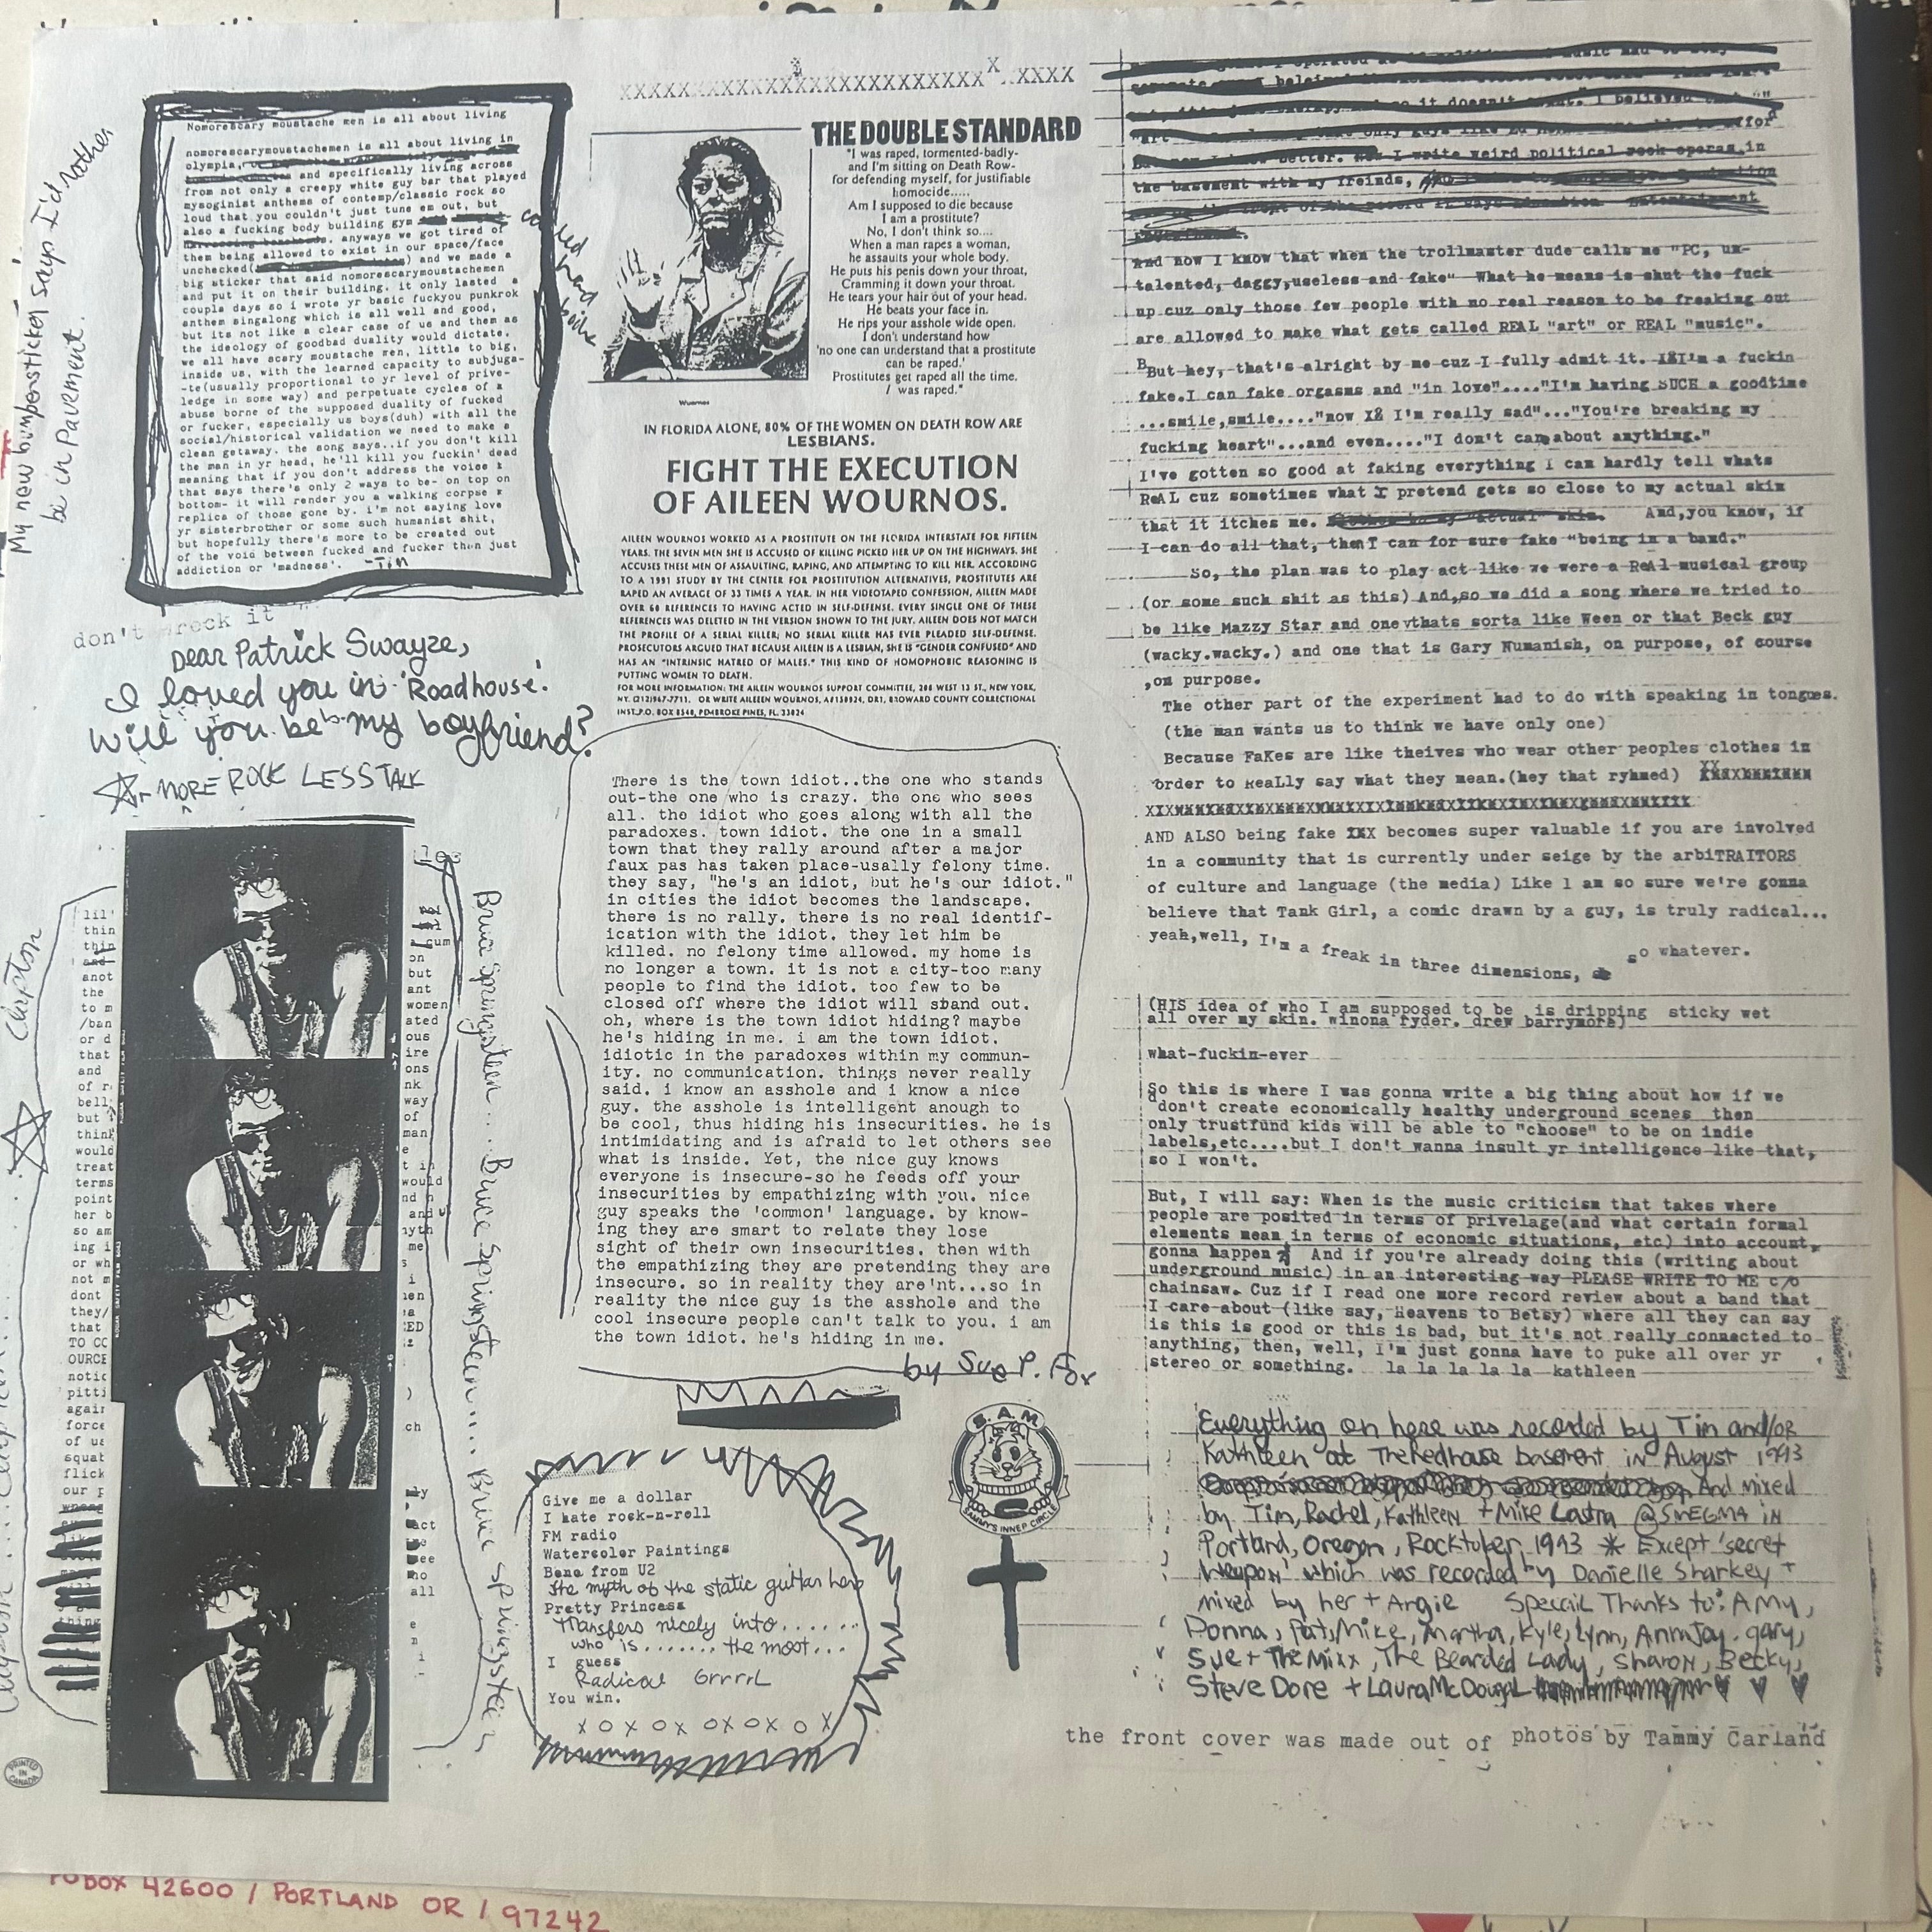 My new bumpersticker says I'd rather
be in Pavement.
Nomorescary moustache men is all about living
nomorescarymoustachemen is all about living in
olympia,
and specifically living across
from not only a creepy white guy bar that played
mysoginist anthems of contemp/classic rock so
loud that you couldn't just tune em out, but
also a fucking body building gym
anyways we got tired of
them being allowed to exist in our space/face
unchecked( ) and we made a
big sticker that said nomorescarymoustachemen
and put it on their building. it only lasted a
couple days so i wrote yr basic fuckyou punkrok
anthem singalong which is all well and good,
but its not like a clear case of us and them as
the ideology of goodbad duality would dictate.
we all have scary moustache men, little to big,
inside us, with the learned capacity to subjuga-
-te(usually proportional to yr level of prive-
ledge in some way) and perpetuate cycles of a
abuse borne of the supposed duality of fucked
or fucker, especially us boys(duh) with all the
social/historical validation we need to make a
clean getaway. the song says..if you don't kill
the man in yr head, he'll kill you fuckin' dead
meaning that if you don't address the voice
that says there's only 2 ways to be- on top on
bottom- it will render you a walking corpse
replica of those gone by. i'm not saying love
yr sisterbrother or some such humanist shit,
but hopefully there's more to be created out
of the void between fucked and fucker then just
addiction or 'madness'. -Tim
head
don't wreck it
Dear Patrick Swayze,
I loved you in 'Roadhouse'.
will you be my boyfriend?
MORE ROCK LESS TALK
Clapton
lil'
thin
thin
and
anot
the
to m
/ban
or d
that
and
of r
bell
but
think
would
treat
terms
point
her b
so am
ing i
or wh
not m
dont
they/
that
TO CO
OURCE
notic
pitti
again
force
of us
squat
flick
our p
thing
cum
on
but
ant
women
ated
ous
ire
ons
nk
way
of
man
e
t in
would
nd
and
myth
me
ch
act
see
no
all
Bruce Springsteen.... Bruce Springsteen.... Bruce Springsteen
PRINTED IN CANADA
XXXXXXXXXXXXXXXXXXXXXXXXXX XXXX
THE DOUBLE STANDARD
"I was raped, tormented-badly-
and I'm sitting on Death Row-
for defending myself, for justifiable
homocide.....
Am I supposed to die because
I am a prostitute?
No, I don't think so....
When a man rapes a woman,
he assaults your whole body.
He puts his penis down your throat,
Cramming it down your throat.
He tears your hair out of your head.
He beats your face in.
He rips your asshole wide open.
I don't understand how
'no one can understand that a prostitute
can be raped.'
Prostitutes get raped all the time.
I was raped."
Wuornos
IN FLORIDA ALONE, 80% OF THE WOMEN ON DEATH ROW ARE
LESBIANS.
FIGHT THE EXECUTION
OF AILEEN WOURNOS.
AILEEN WOURNOS WORKED AS A PROSTITUTE ON THE FLORIDA INTERSTATE FOR FIFTEEN
YEARS. THE SEVEN MEN SHE IS ACCUSED OF KILLING PICKED HER UP ON THE HIGHWAYS. SHE
ACCUSES THESE MEN OF ASSAULTING, RAPING, AND ATTEMPTING TO KILL HER. ACCORDING
TO A 1991 STUDY BY THE CENTER FOR PROSTITUTION ALTERNATIVES, PROSTITUTES ARE
RAPED AN AVERAGE OF 33 TIMES A YEAR. IN HER VIDEOTAPED CONFESSION, AILEEN MADE
OVER 60 REFERENCES TO HAVING ACTED IN SELF-DEFENSE. EVERY SINGLE ONE OF THESE
REFERENCES WAS DELETED IN THE VERSION SHOWN TO THE JURY. AILEEN DOES NOT MATCH
THE PROFILE OF A SERIAL KILLER; NO SERIAL KILLER HAS EVER PLEADED SELF-DEFENSE.
PROSECUTORS ARGUED THAT BECAUSE AILEEN IS A LESBIAN, SHE IS "GENDER CONFUSED" AND
HAS AN "INTRINSIC HATRED OF MALES." THIS KIND OF HOMOPHOBIC REASONING IS
PUTTING WOMEN TO DEATH.
FOR MORE INFORMATION: THE AILEEN WOURNOS SUPPORT COMMITTEE, 208 WEST 13 ST., NEW YORK,
NY. (212)967-7711. OR WRITE AILEEN WOURNOS, A#150924, DR1, BROWARD COUNTY CORRECTIONAL
INST.P.O. BOX 8540, PEMBROKE PINES, FL. 33024
There is the town idiot..the one who stands
out-the one who is crazy. the one who sees
all. the idiot who goes along with all the
paradoxes. town idiot. the one in a small
town that they rally around after a major
faux pas has taken place-usally felony time.
they say, "he's an idiot, but he's our idiot."
in cities the idiot becomes the landscape.
there is no rally. there is no real identif-
ication with the idiot. they let him be
killed. no felony time allowed. my home is
no longer a town. it is not a city-too many
people to find the idiot. too few to be
closed off where the idiot will stand out.
oh, where is the town idiot hiding? maybe
he's hiding in me. i am the town idiot.
idiotic in the paradoxes within my commun-
ity. no communication. things never really
said. i know an asshole and i know a nice
guy. the asshole is intelligent anough to
be cool, thus hiding his insecurities. he is
intimidating and is afraid to let others see
what is inside. Yet, the nice guy knows
everyone is insecure-so he feeds off your
insecurities by empathizing with you. nice
guy speaks the 'common' language. by know-
ing they are smart to relate they lose
sight of their own insecurities. then with
the empathizing they are pretending they are
insecure. so in reality they are'nt...so in
reality the nice guy is the asshole and the
cool insecure people can't talk to you. i am
the town idiot. he's hiding in me.
by Sue P. Fox
Give me a dollar
I hate rock-n-roll
FM radio
Watercolor Paintings
Bono from U2
The myth of the static guitar hero
Pretty Princess
Transfers nicely into.......
who is........ the most...
I guess
Radical GrrrrL
You win.
x o x o x o x o x o x
S.A.M.
SAMMY'S INNER CIRCLE
better. I write weird political rock operas in
the basement with my freinds,
And now I know that when the trollmaster dude calls me "PC, un-
talented, daggy,useless and fake" What he means is shut the fuck
up cuz only those few people with no real reason to be freaking out
are allowed to make what gets called REAL "art" or REAL "music".
But hey, that's alright by me cuz I fully admit it. I'm a fuckin
fake.I can fake orgasms and "in love"...."I'm having SUCH a goodtime
...smile,smile...."now I'm really sad"..."You're breaking my
fucking heart"...and even...."I don't care about anything."
I've gotten so good at faking everything I can hardly tell whats
ReAL cuz sometimes what I pretend gets so close to my actual skin
that it itches me. And,you know, if
I can do all that, then I can for sure fake "being in a band."
So, the plan was to play act like we were a ReAl musical group
(or some such shit as this) And,so we did a song where we tried to
be like Mazzy Star and one thats sorta like Ween or that Beck guy
(wacky.wacky.) and one that is Gary Numanish, on purpose, of course
,on purpose.
The other part of the experiment had to do with speaking in tongues.
(the man wants us to think we have only one)
Because FaKes are like theives who wear other peoples clothes in
order to ReaLly say what they mean.(hey that ryhmed)
AND ALSO being fake becomes super valuable if you are involved
in a community that is currently under seige by the arbiTRAITORS
of culture and language (the media) Like I am so sure we're gonna
believe that Tank Girl, a comic drawn by a guy, is truly radical...
yeah,well, I'm a freak in three dimensions, so whatever.
(HIS idea of who I am supposed to be is dripping sticky wet
all over my skin. winona ryder. drew barrymore)
what-fuckin-ever
So this is where I was gonna write a big thing about how if we
don't create economically healthy underground scenes then
only trustfund kids will be able to "choose" to be on indie
labels,etc....but I don't wanna insult yr intelligence like that,
so I won't.
But, I will say: When is the music criticism that takes where
people are posited in terms of privelage(and what certain formal
elements mean in terms of economic situations, etc) into account,
gonna happen? And if you're already doing this (writing about
underground music) in an interesting way PLEASE WRITE TO ME c/o
chainsaw. Cuz if I read one more record review about a band that
I care about (like say, Heavens to Betsy) where all they can say
is this is good or this is bad, but it's not really connected to
anything, then, well, I'm just gonna have to puke all over yr
stereo or something. la la la la la kathleen
Everything on here was recorded by Tim and/or
Kathleen at The Redhouse basement in August 1993
And mixed
by Tim, Rachel, Kathleen + Mike Lastra @SMEGMA in
Portland, Oregon, Rocktober 1993 * Except 'secret
Weapon' which was recorded by Danielle Sharkey +
mixed by her + Argie Speciail Thanks to: AMy,
Donna, Pat, Mike, Martha, Kyle, Lynn, AnnmJoy. gary,
Sue + The Mixx, The Bearded Lady, Sharon, Becky,
Steve Dore + Laura McDougal
the front cover was made out of photos by Tammy Carland
PO BOX 42600 / PORTLAND OR / 97242